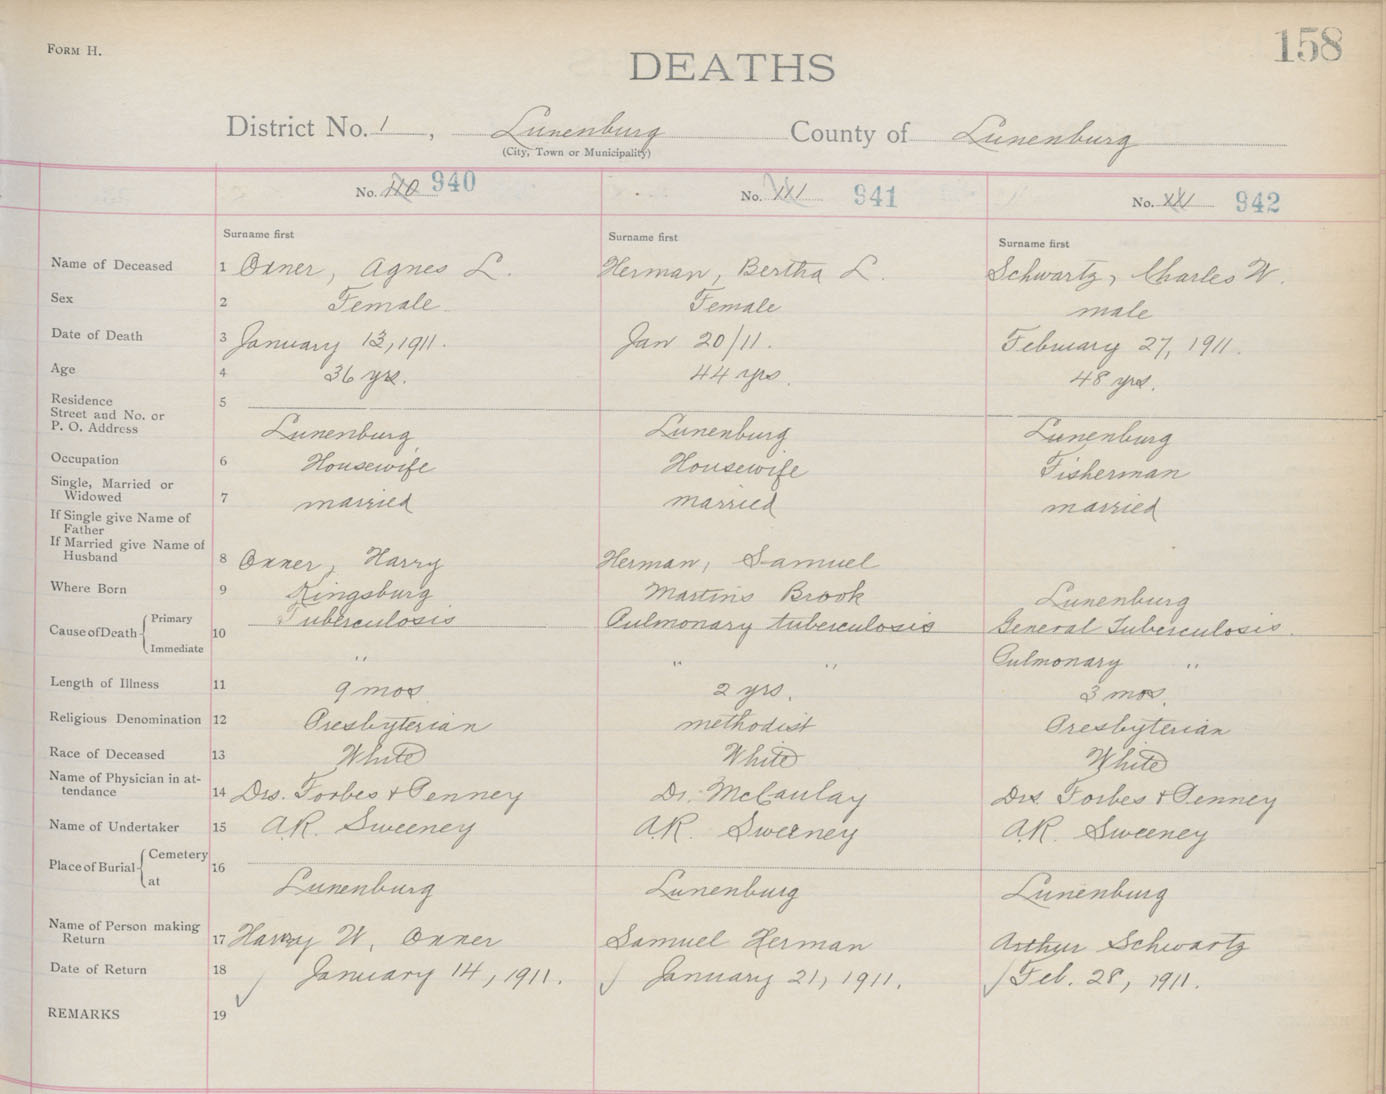 FORM H.
158
DEATHS
District No. 1, Lunenburg County of Lunenburg
(City, Town or Municipality)
No. 110 940 No. 111 941 No. 942
Surname first Surname first Surname first
Name of Deceased 1 Oxner, Agnes L. Herman, Bertha L. Schwartz, Charles W.
Sex 2 Female Female male
Date of Death 3 January 13, 1911. Jan 20/11. February 27, 1911.
Age 4 36 yrs. 44 yrs. 48 yrs.
Residence 5
Street and No. or
P. O. Address Lunenburg Lunenburg Lunenburg
Occupation 6 Housewife Housewife Fisherman
Single, Married or
Widowed 7 married married married
If Single give Name of
Father
If Married give Name of
Husband 8 Oxner, Harry Herman, Samuel
Where Born 9 Kingsburg Martins Brook Lunenburg
Cause of Death Primary 10 Tuberculosis Pulmonary tuberculosis General Tuberculosis.
Immediate " " " Pulmonary "
Length of Illness 11 9 mos 2 yrs. 3 mos.
Religious Denomination 12 Presbyterian methodist Presbyterian
Race of Deceased 13 White White White
Name of Physician in at-
tendance 14 Drs. Forbes & Penney Dr. McCaulay Drs. Forbes & Penney
Name of Undertaker 15 A.R. Sweeney A.R. Sweeney A.R. Sweeney
Place of Burial Cemetery 16
at Lunenburg Lunenburg Lunenburg
Name of Person making
Return 17 Harry W. Oxner Samuel Herman Arthur Schwartz
Date of Return 18 January 14, 1911. January 21, 1911. Feb. 28, 1911.
REMARKS 19